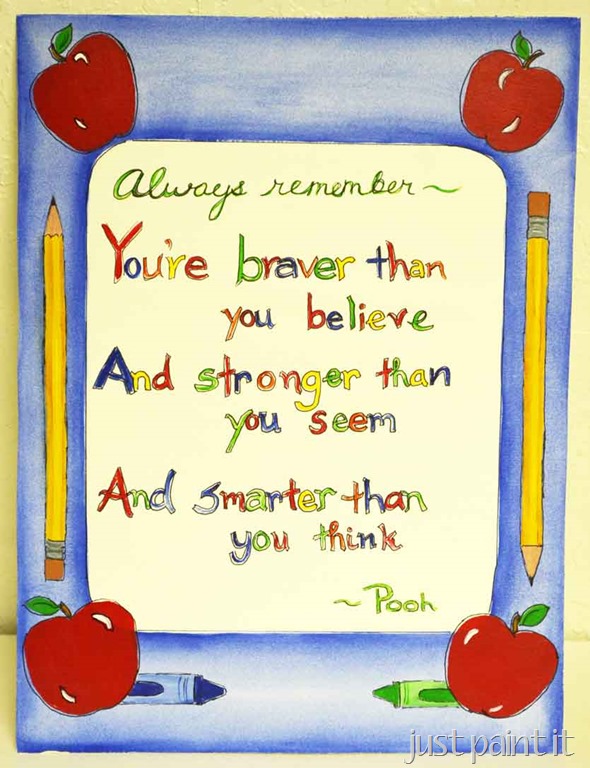 Always remember~
You're braver than
you believe
And stronger than
you seem
And smarter than
you think
~Pooh
just paint it